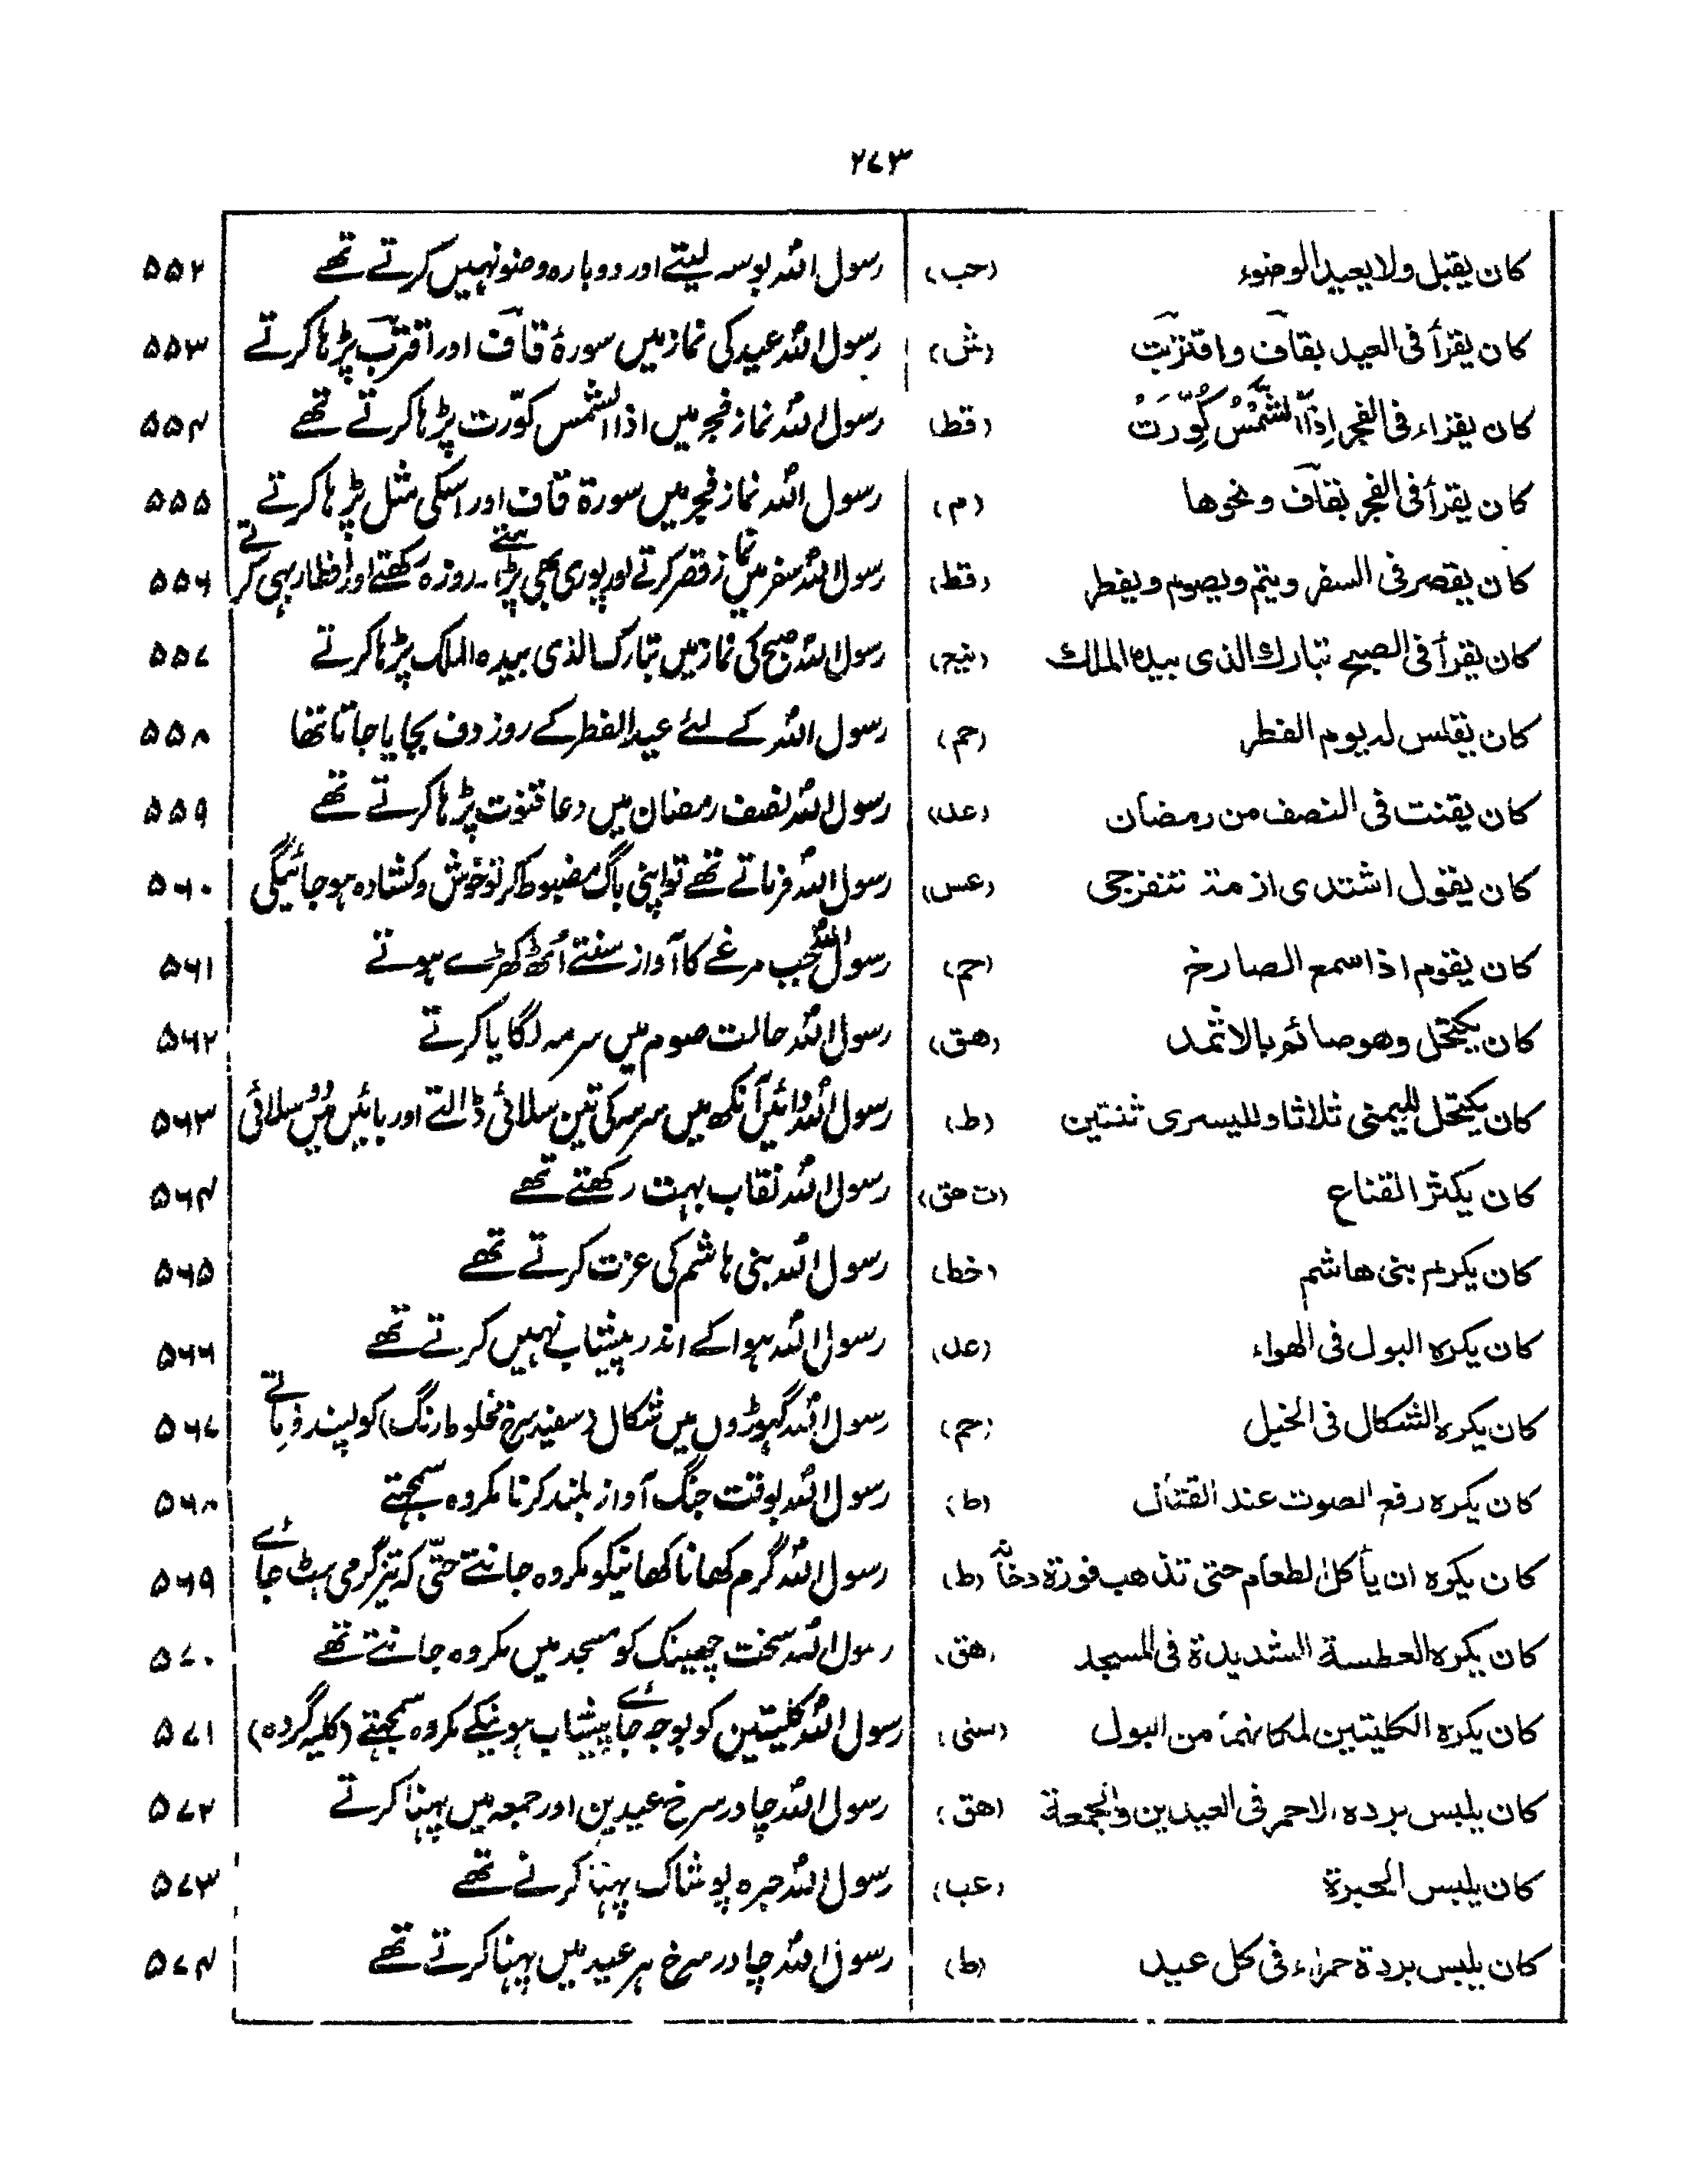 ۲۷۳
کان یقبل ولا یعید الوضوء (حب) رسول اللہ بوسہ لیتے اور دوبارہ وضو نہیں کرتے تھے ۵۵۲
کان یقرأ فی العید بقاف واقتربت (ش) رسول اللہ عید کی نماز میں سورۂ قاف اور اقترب پڑہا کرتے ۵۵۳
کان یقراء فی الفجر اِذَا الشَّمْسُ كُوِّرَتْ (قط) رسول اللہ نماز فجر میں اذا الشمس کوّرت پڑہا کرتے تھے ۵۵۴
کان یقرأ فی الفجر بقاف ونحوها (م) رسول اللہ نماز فجر میں سورۃ قاف اور اسکی مثل پڑہا کرتے ۵۵۵
کان یقصر فی السفر ویتم ویصوم ویفطر (قط) رسول اللہ سفر میں نماز قصر کرتے اور پوری بھی پڑہتے۔ روزہ رکھتے اور افطار بہی کرتے ۵۵۶
کان یقرأ فی الصبح تبارک الذی بیدہ الملک رسول اللہ صبح کی نماز میں تبارک الذی بیدہ الملک پڑہا کرتے ۵۵۷
کان یقلس لہ یوم الفطر (حم) رسول اللہ کے لئے عید الفطر کے روز دف بجایا جاتا تھا ۵۵۸
کان یقنت فی النصف من رمضان (عد) رسول اللہ نصف رمضان میں دعا قنوت پڑہا کرتے تھے ۵۵۹
کان یقول اشتدی ازمة تنفرجی (عس) رسول اللہ فرماتے تھے تو اپنی باگ مضبوط کر تو خوش و کشادہ ہو جائیگی ۵۶۰
کان یقوم اذا سمع الصارخ (حم) رسول اللہ جب مرغے کا آواز سنتے اُٹھ کھڑے ہوتے ۵۶۱
کان یکتحل وهو صائم بالاثمد (هق) رسول اللہ حالت صوم میں سرمہ لگایا کرتے ۵۶۲
کان یکتحل للیمنی ثلاثا وللیسری ثنتین (ط) رسول اللہ دائیں آنکھ میں سرمہ کی تین سلائی ڈالتے اور بائیں میں دو سلائی ۵۶۳
کان یکثر القناع (ت هق) رسول اللہ نقاب بہت رکھتے تھے ۵۶۴
کان یکرم بنی هاشم (خط) رسول اللہ بنی ہاشم کی عزت کرتے تھے ۵۶۵
کان یکرہ البول فی الهواء (عد) رسول اللہ ہوا کے اندر پیشاب نہیں کرتے تھے ۵۶۶
کان یکرہ الشکال فی الخیل (حم) رسول اللہ گہوڑوں میں شکال (سفید سرخ مخلوط رنگ) کو پسند فرماتے ۵۶۷
کان یکرہ رفع الصوت عند القتال (ط) رسول اللہ بوقت جنگ آواز بلند کرنا مکروہ سمجہتے ۵۶۸
کان یکرہ ان یأکل الطعام حتی تذهب فورة دخانه (ط) رسول اللہ گرم کھانا کھانیکو مکروہ جانتے حتّی کہ تیز گرمی ہٹ جائے ۵۶۹
کان یکرہ العطسة الشدیدة فی المسجد (هق) رسول اللہ سخت چھینک کو مسجد میں مکروہ جانتے تھے ۵۷۰
کان یکرہ الکلیتین لمکانهما من البول (سنی) رسول اللہ کلیتین کو بوجہ جائے پیشاب ہونیکے مکروہ سمجہتے (کلیہ گردہ) ۵۷۱
کان یلبس بردہ الاحمر فی العیدین والجمعة (هق) رسول اللہ چادر سرخ عیدین اور جمعہ میں پہنا کرتے ۵۷۲
کان یلبس الحبرة (عب) رسول اللہ حبرہ پوشاک پہنا کرتے تھے ۵۷۳
کان یلبس بردة حمراء فی کل عید (ط) رسول اللہ چادر سرخ ہر عید میں پہنا کرتے تھے ۵۷۴